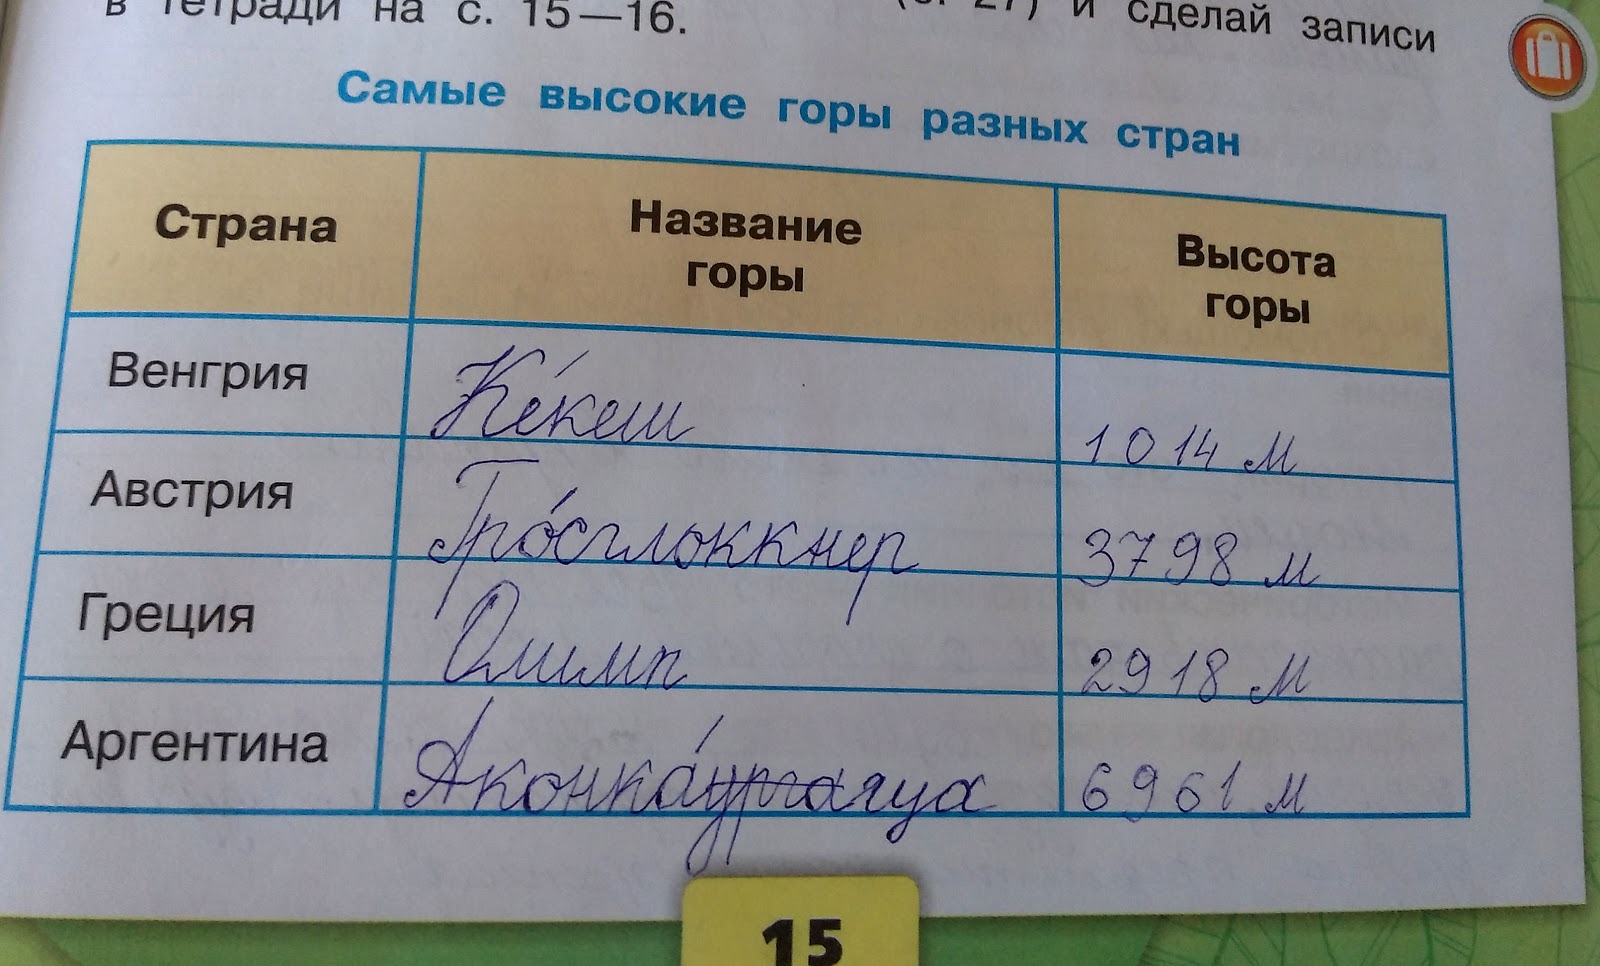 в тетради на с. 15—16. (с. 27) и сделай записи
Самые высокие горы разных стран
Страна Название горы Высота горы
Венгрия Ке́кеш 1014 м
Австрия Гро́сглоккнер 3798 м
Греция Олимп 2918 м
Аргентина Аконка́гуа 6961 м
15